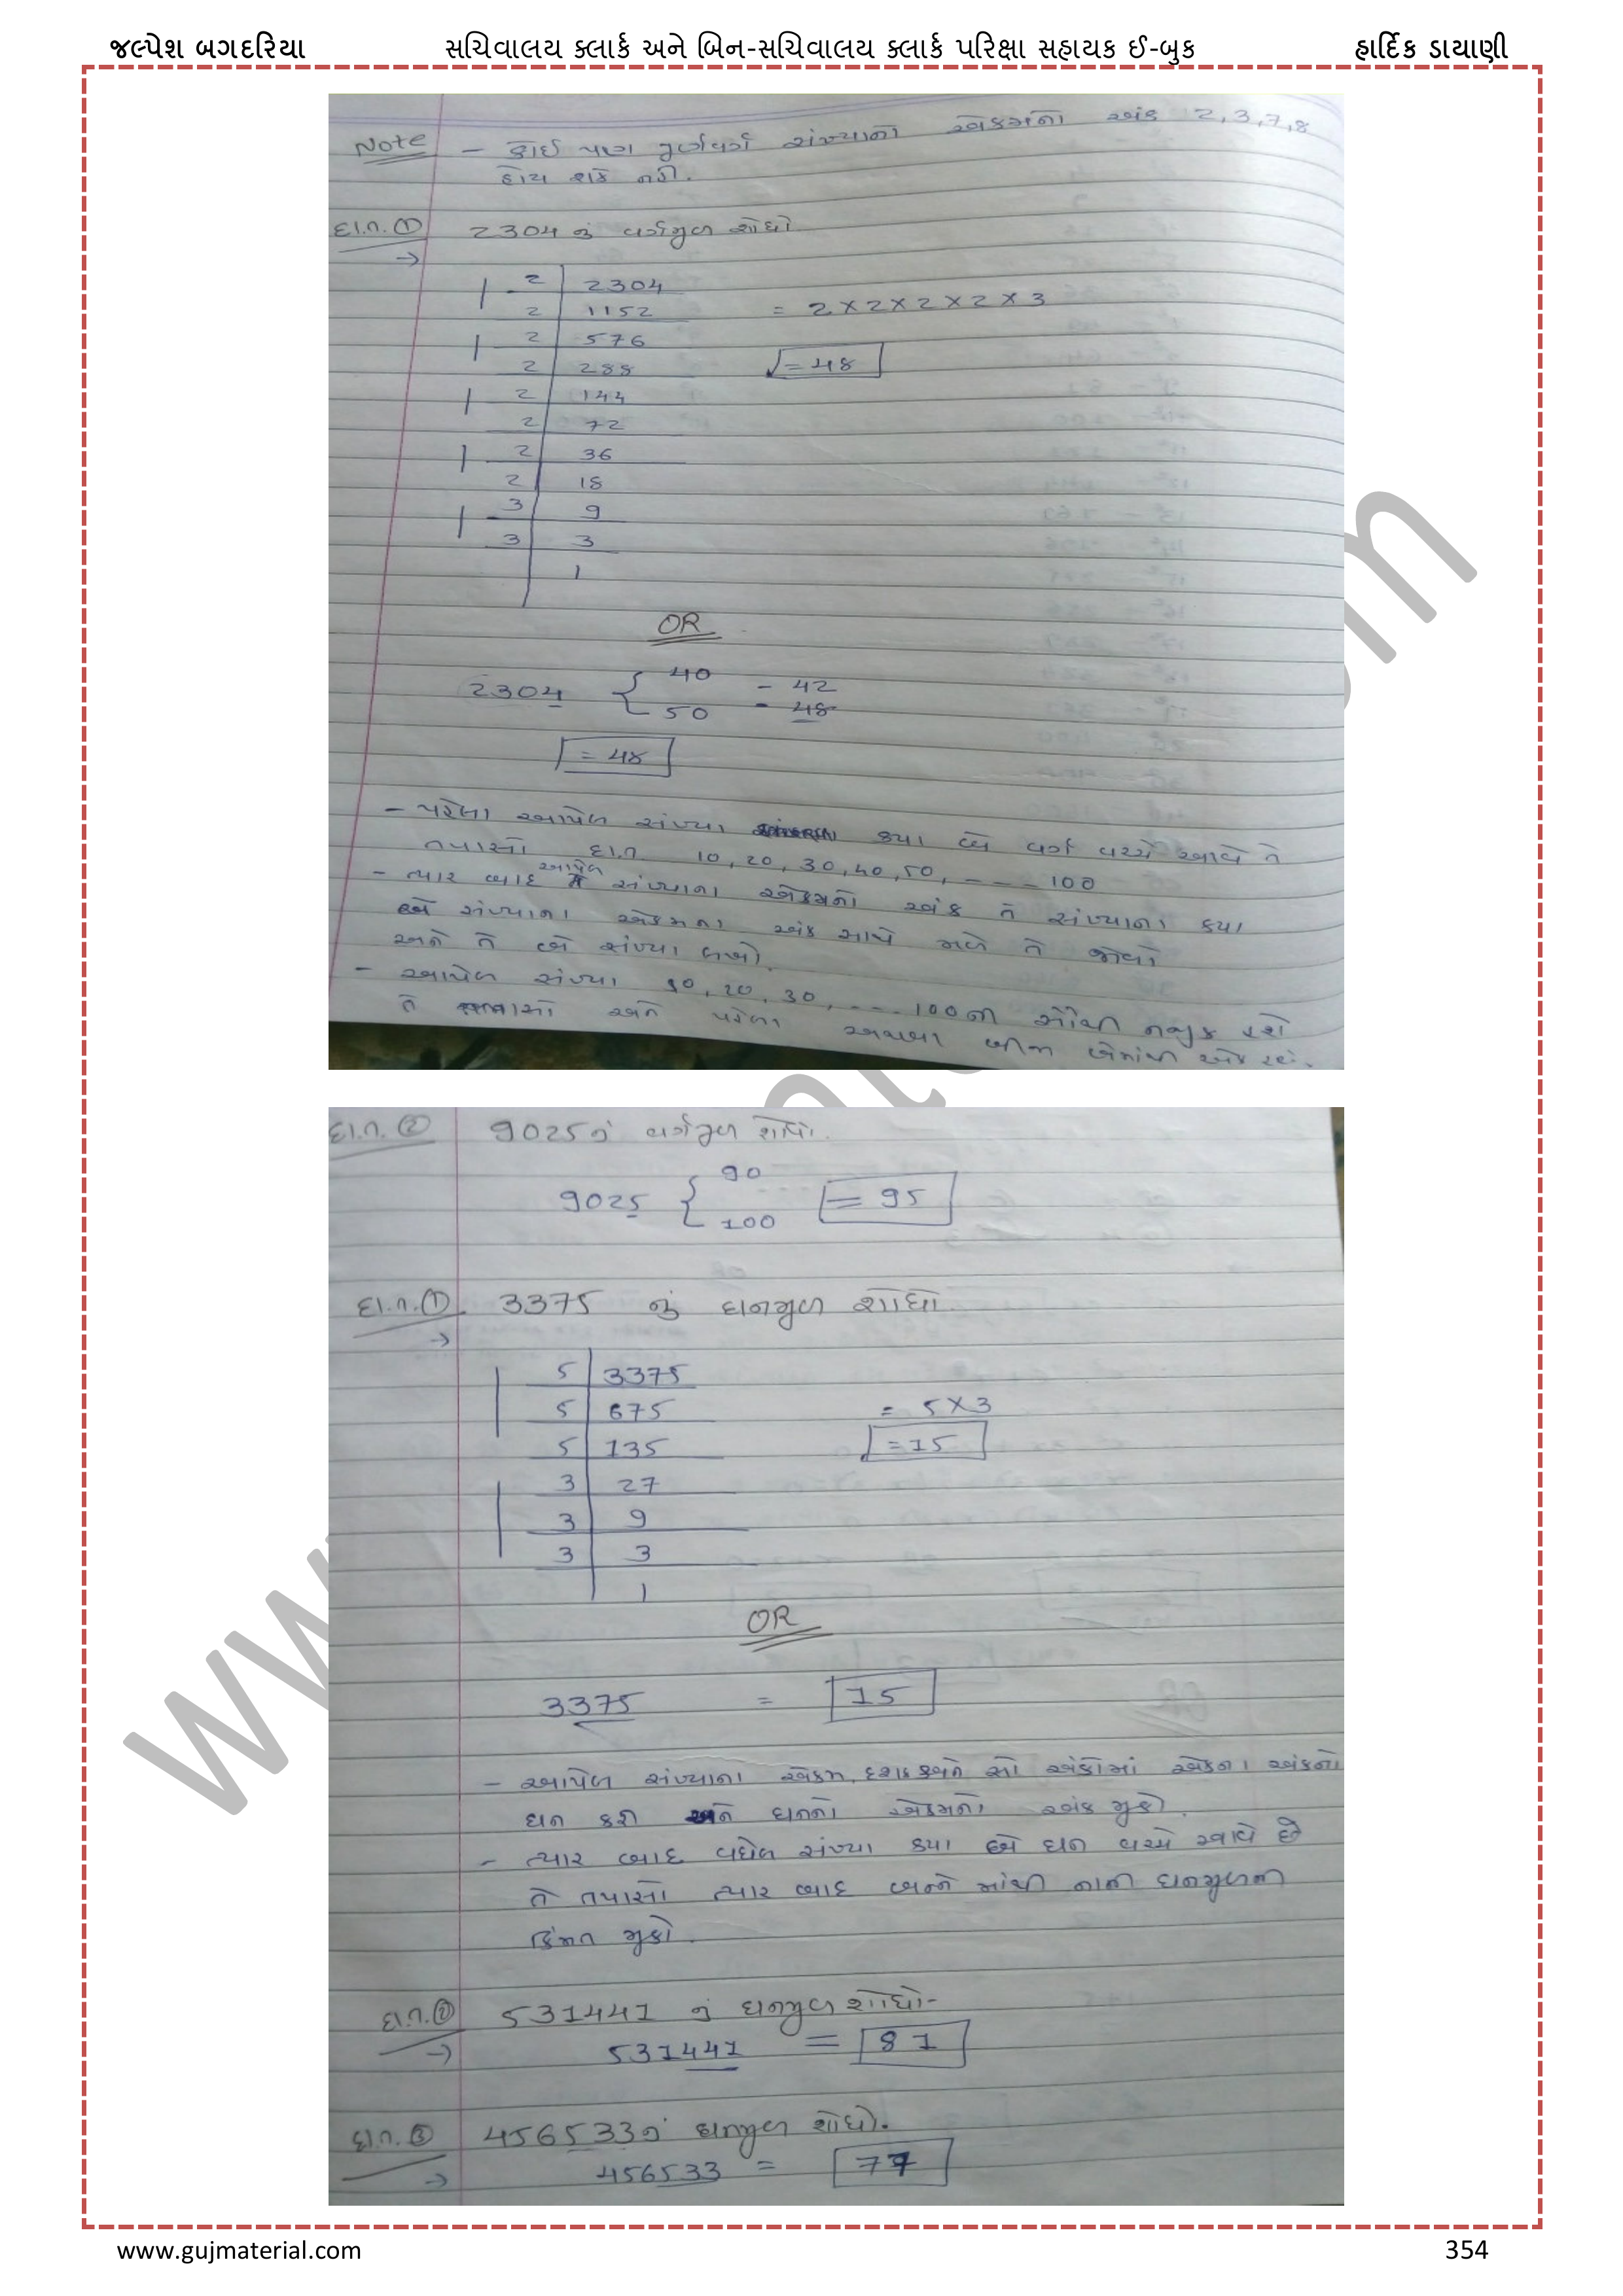 જલ્પેશ બગદરિયા સચિવાલય ક્લાર્ક અને બિન-સચિવાલય ક્લાર્ક પરિક્ષા સહાયક ઈ-બુક હાર્દિક ડાયાણી
Note - કોઈ પણ પૂર્ણવર્ગ સંખ્યાનો એકમનો અંક 2,3,7,8
હોય શકે નહી.
દા.ત. ① 2304 નું વર્ગમુળ શોધો
→
2 2304
2 1152 = 2×2×2×2×3
2 576
2 288 = 48
2 144
2 72
2 36
2 18
3 9
3 3
1
OR
40
2304 - 42
50 - 48
= 48
- પહેલા આપેલ સંખ્યા કયા બે વર્ગ વચ્ચે આવે તે
તપાસો દા.ત. 10, 20, 30, 40, 50, - - - 100
- ત્યાર બાદ આપેલ સંખ્યાના એકમનો અંક તે સંખ્યાના કયા
બે સંખ્યાના એકમના અંક સાથે મળે તે જોવો
અને તે બે સંખ્યા લખો.
- આપેલ સંખ્યા 10, 20, 30, --- 100 ની સૌથી નજીક હશે
તે તપાસો અને પહેલા અથવા બીજા બેમાંથી એક હશે.
દા.ત. ② 9025 નું વર્ગમુળ શોધો.
90
9025 = 95
100
દા.ત. ① 3375 નું ઘનમુળ શોધો.
→
5 3375
5 675 = 5×3
5 135 = 15
3 27
3 9
3 3
1
OR
3375 = 15
- આપેલ સંખ્યાના એકમ, દશક અને સો અંકોમાં એકના અંકનો
ઘન કરી અને ઘનનો એકમનો અંક મુકો.
- ત્યાર બાદ વધેલ સંખ્યા કયા બે ઘન વચ્ચે આવે છે
તે તપાસો ત્યાર બાદ બન્ને માંથી નાની ઘનમુળની
કિંમત મુકો.
દા.ત. ② 531441 નું ઘનમુળ શોધો-
→ 531441 = 81
દા.ત. ③ 456533 નું ઘનમુળ શોધો.
→ 456533 = 77
www.gujmaterial.com 354